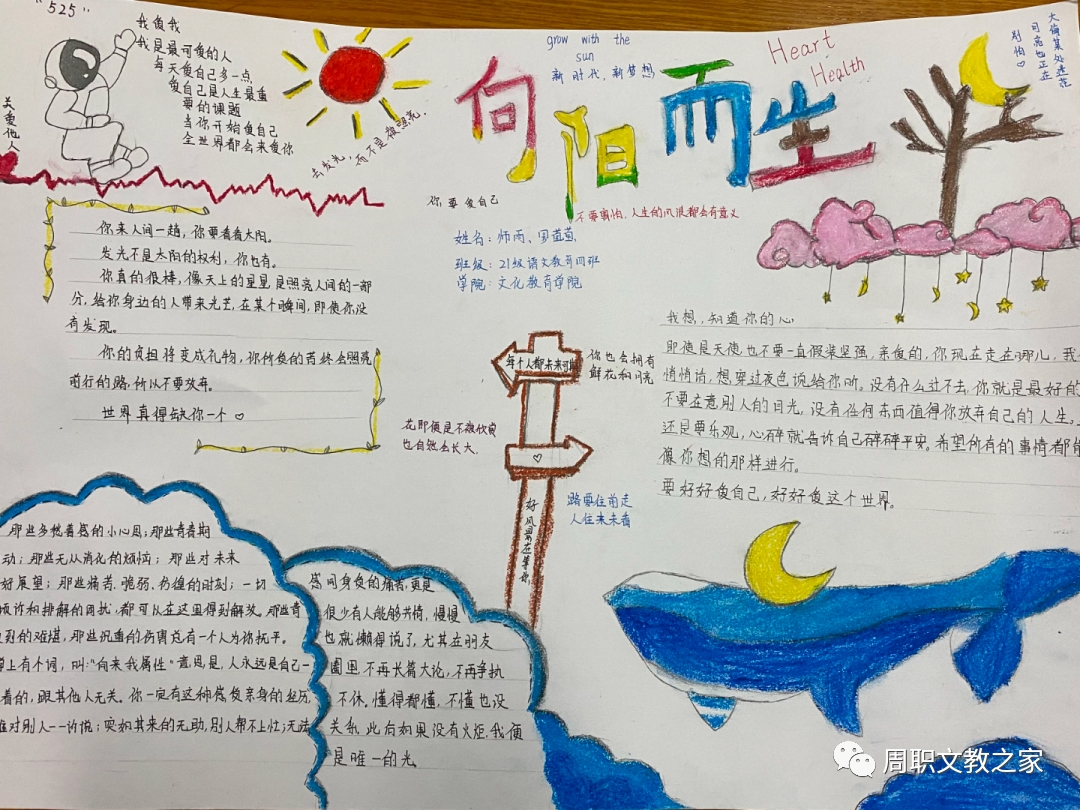 "525"
我爱我
我是最可爱的人
每天爱自己多一点,
爱自己是人生最重
要的课题
当你开始爱自己
全世界都会来爱你
关爱他人
去发光,而不是被照亮.
grow with the
sun
新时代,新梦想
Heart
Health
向阳而生
别怕♡
你要爱自己
不要害怕,人生的风浪都会有意义
姓名:师雨、
班级:21级语文教育四班
学院:文化教育学院
你来人间一趟,你要看看太阳。
发光不是太阳的权利,你也有。
你真的很棒,像天上的星星是照亮人间的一部
分,给你身边的人带来光芒,在某个瞬间,即使你没
有发现。
你的负担将变成礼物,你所受的苦终会照亮
前行的路,所以不要放弃。
世界真得缺你一个♡
每个人都未来可
你也会拥有
鲜花和月亮
花即便是不被欣赏
也自然会长大.
好风景在等你
路要往前走
人往未来看
我想,知道你的心
即使是天使也不要一直假装坚强,亲爱的,你现在走在哪儿,我
悄悄话,想穿过夜色说给你听。没有什么过不去,你就是最好的
不要在意别人的目光,没有任何东西值得你放弃自己的人生。
还是要乐观,心碎就告诉自己碎碎平安。希望所有的事情都能
像你想的那样进行。
要好好爱自己,好好爱这个世界。
那些多愁善感的小心思;那些青春期
动;那些无从消化的烦恼;那些对未来
好展望;那些痛苦、脆弱、彷徨的时刻;一切
倾诉和排解的困扰,都可以在这里得到解放。那些青
到的难堪,那些沉重的伤害总有一个人为你抚平。
上有个词,叫:"向来我属性"意思是,人永远是自己一
着的,跟其他人无关。你一定有这种感受亲身的经历
难对别人一一诉说;突如其来的无助,别人帮不上忙;无法
感同身受的痛苦,更是
很少有人能够共情,慢慢
也就懒得说了,尤其在朋友
圈里,不再长篇大论,不再争执
不休,懂得都懂,不懂也没
关系,此后如果没有火炬,我便
是唯一的光
周职文教之家